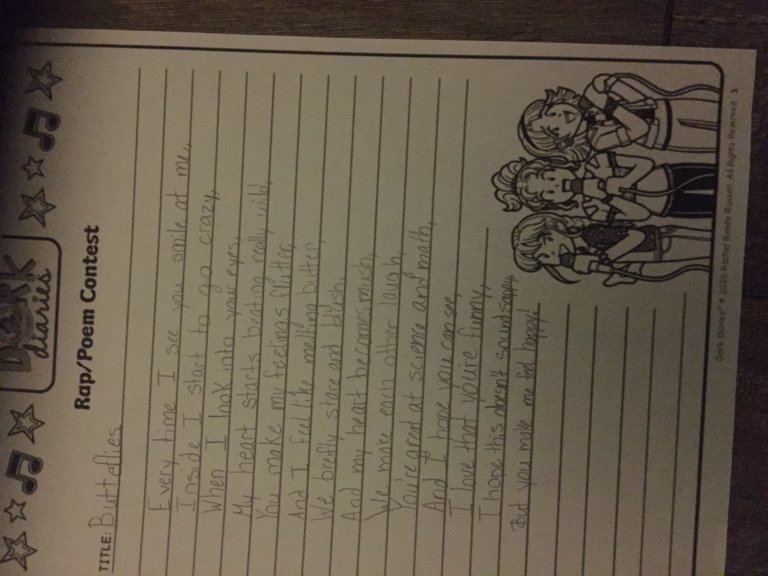 DORK
diaries
Rap/Poem Contest
TITLE: Butterflies
Every time I see you smile at me,
Inside I start to go crazy,
When I look into your eyes,
My heart starts beating really wild,
You make my feelings flutter,
And I feel like melting butter,
We briefly stare and blush,
And my heart becomes mush,
We make each other laugh,
You're great at science and math,
And I hope you can see,
I love that you're funny,
I hope this doesn't sound sappy,
But you make me feel happy!
Dork Diaries™ © 2020 Rachel Renée Russell All Rights Reserved 3